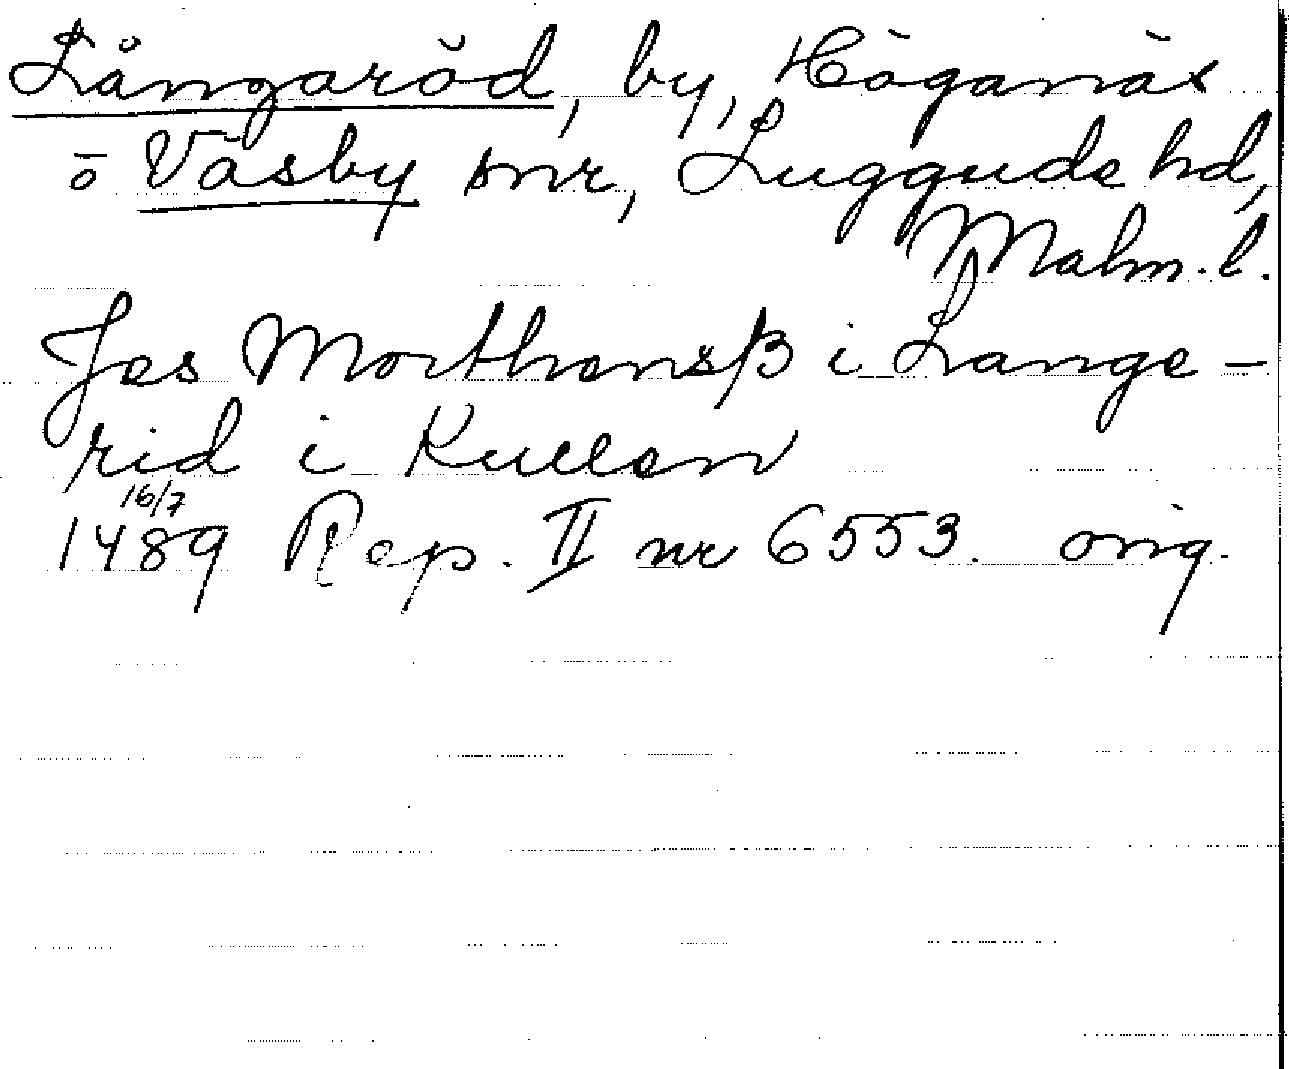 Långaröd, by, Höganäs
o Väsby snr, Luggude hd,
Malm. l.
Jes Morthensß i Lange-
rid i Kullen
16/7
1489 Rep. II nr 6553. orig.